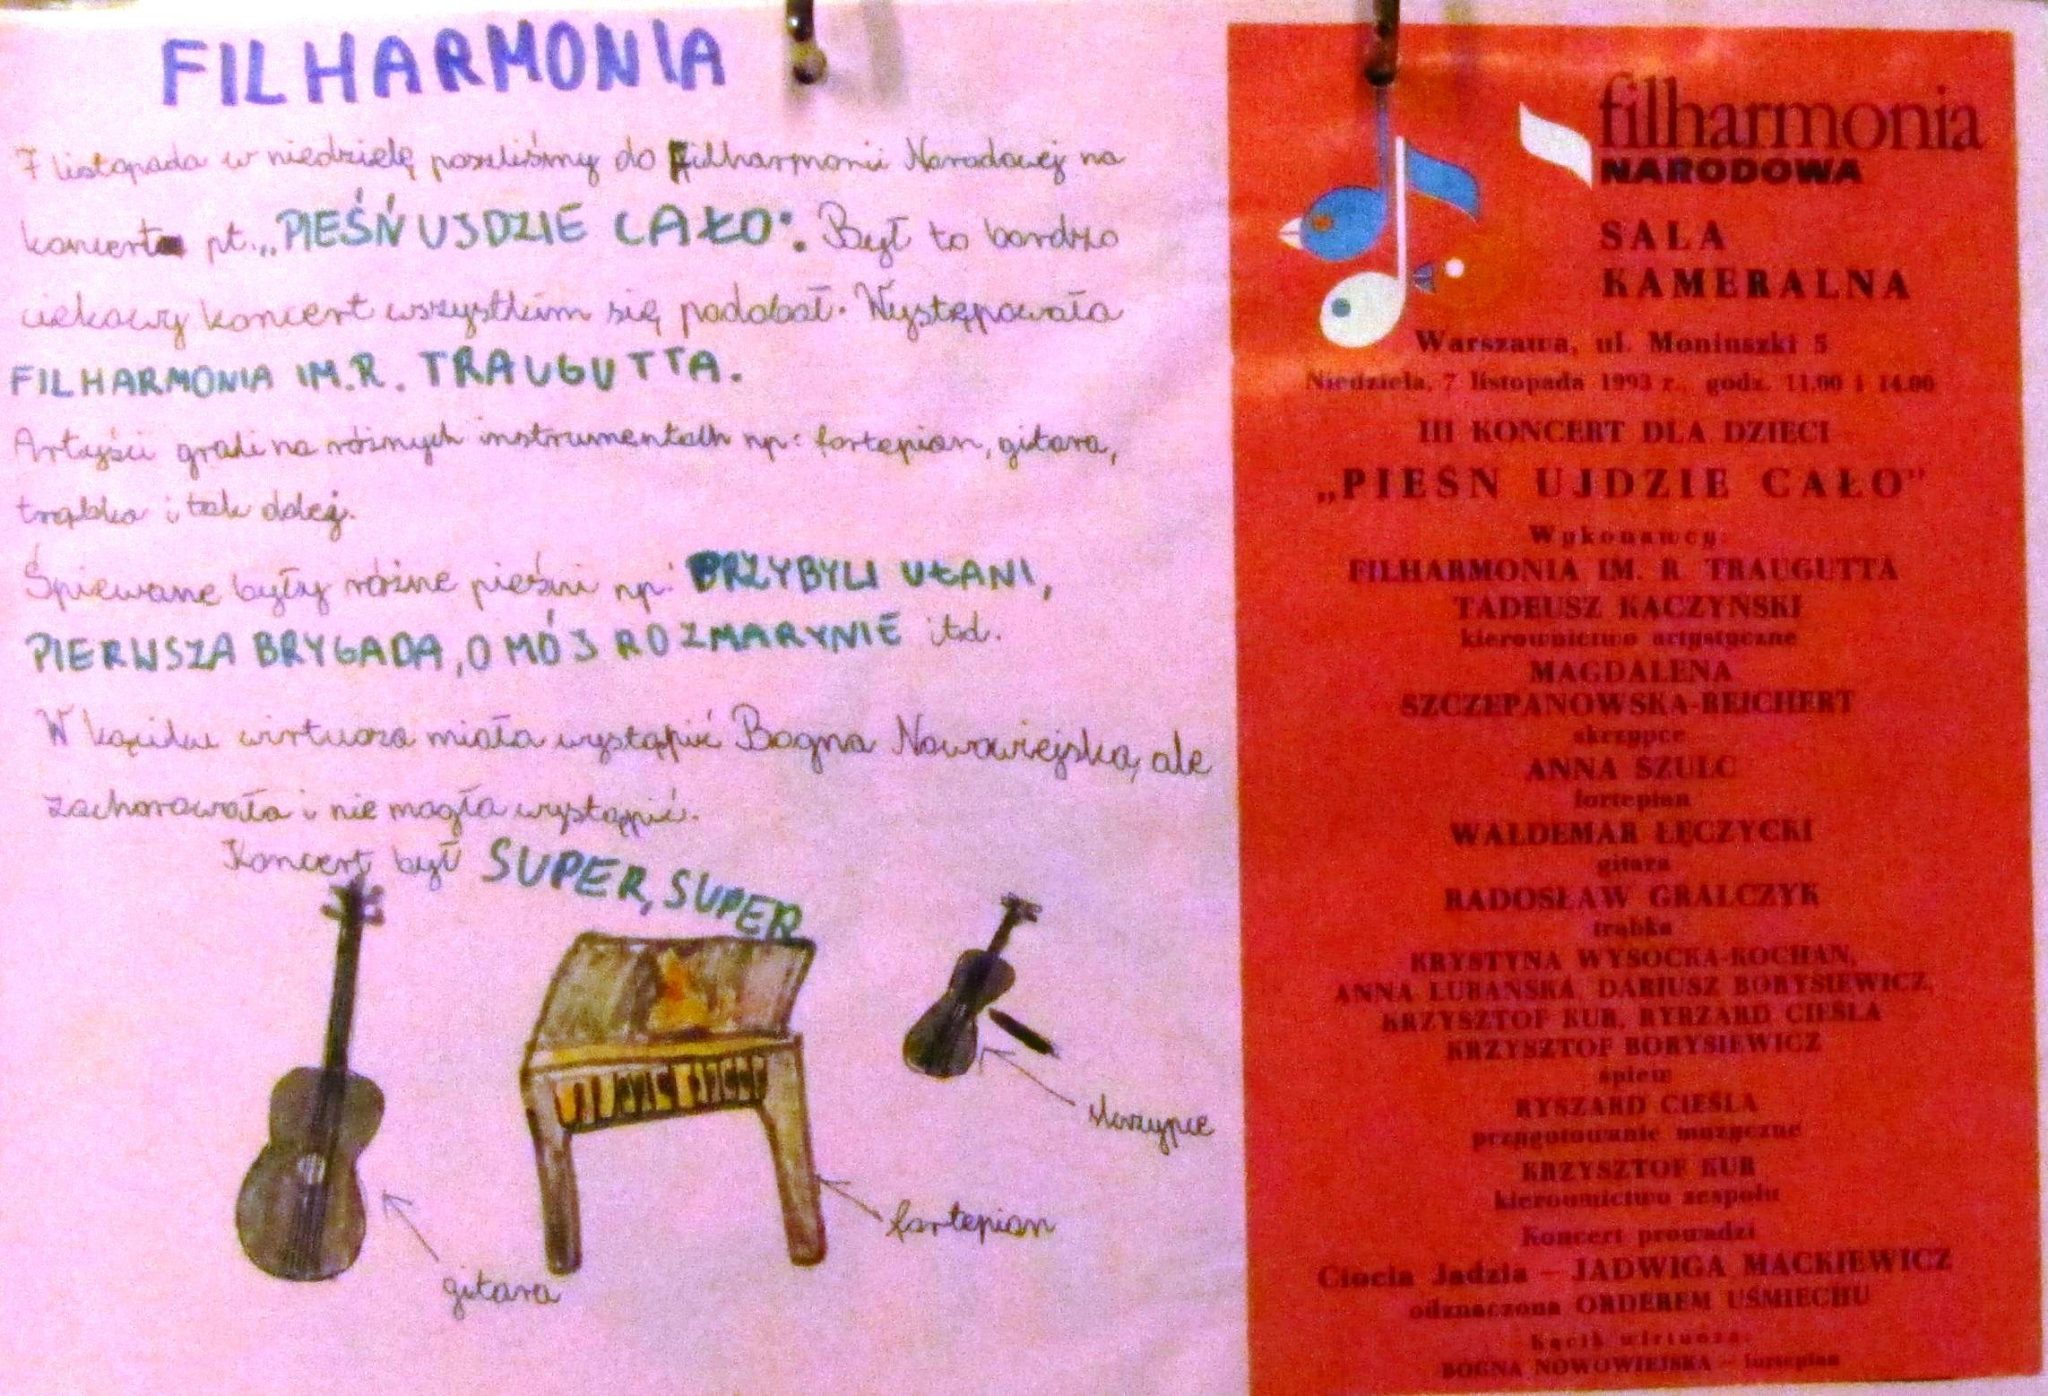 FILHARMONIA
7 listopada w niedzielę poszliśmy do Filharmonii Narodowej na
koncert pt. „PIEŚŃ UJDZIE CAŁO". Był to bardzo
ciekawy koncert wszystkim się podobał. Występowała
FILHARMONIA IM. R. TRAUGUTTA.
Artyści grali na różnych instrumentach np: fortepian, gitara,
trąbka i tak dalej.
Śpiewane były różne pieśni np: PRZYBYLI UŁANI,
PIERWSZA BRYGADA, O MÓJ ROZMARYNIE itd.
W kąciku wirtuoza miała wystąpić Bogna Nowowiejska, ale
zachorowała i nie mogła wystąpić.
Koncert był SUPER, SUPER
skrzypce
fortepian
gitara
filharmonia
NARODOWA
SALA
KAMERALNA
Warszawa, ul. Moniuszki 5
Niedziela, 7 listopada 1993 r., godz. 11.00 i 14.00
III KONCERT DLA DZIECI
„PIEŚN UJDZIE CAŁO"
Wykonawcy:
FILHARMONIA IM. R. TRAUGUTTA
TADEUSZ KACZYŃSKI
kierownictwo artystyczne
MAGDALENA
SZCZEPANOWSKA-REICHERT
skrzypce
ANNA SZULC
fortepian
WALDEMAR ŁĘCZYCKI
gitara
RADOSŁAW GRALCZYK
trąbka
KRYSTYNA WYSOCKA-KOCHAN,
ANNA LUBAŃSKA, DARIUSZ BORYSIEWICZ,
KRZYSZTOF KUR, RYRZARD CIEŚLA
KRZYSZTOF BORYSIEWICZ
śpiew
RYSZARD CIEŚLA
przygotowanie muzyczne
KRZYSZTOF KUR
kierownictwo zespołu
Koncert prowadzi
Ciocia Jadzia – JADWIGA MACKIEWICZ
odznaczona ORDEREM UŚMIECHU
Kącik wirtuoza:
BOGNA NOWOWIEJSKA – fortepian